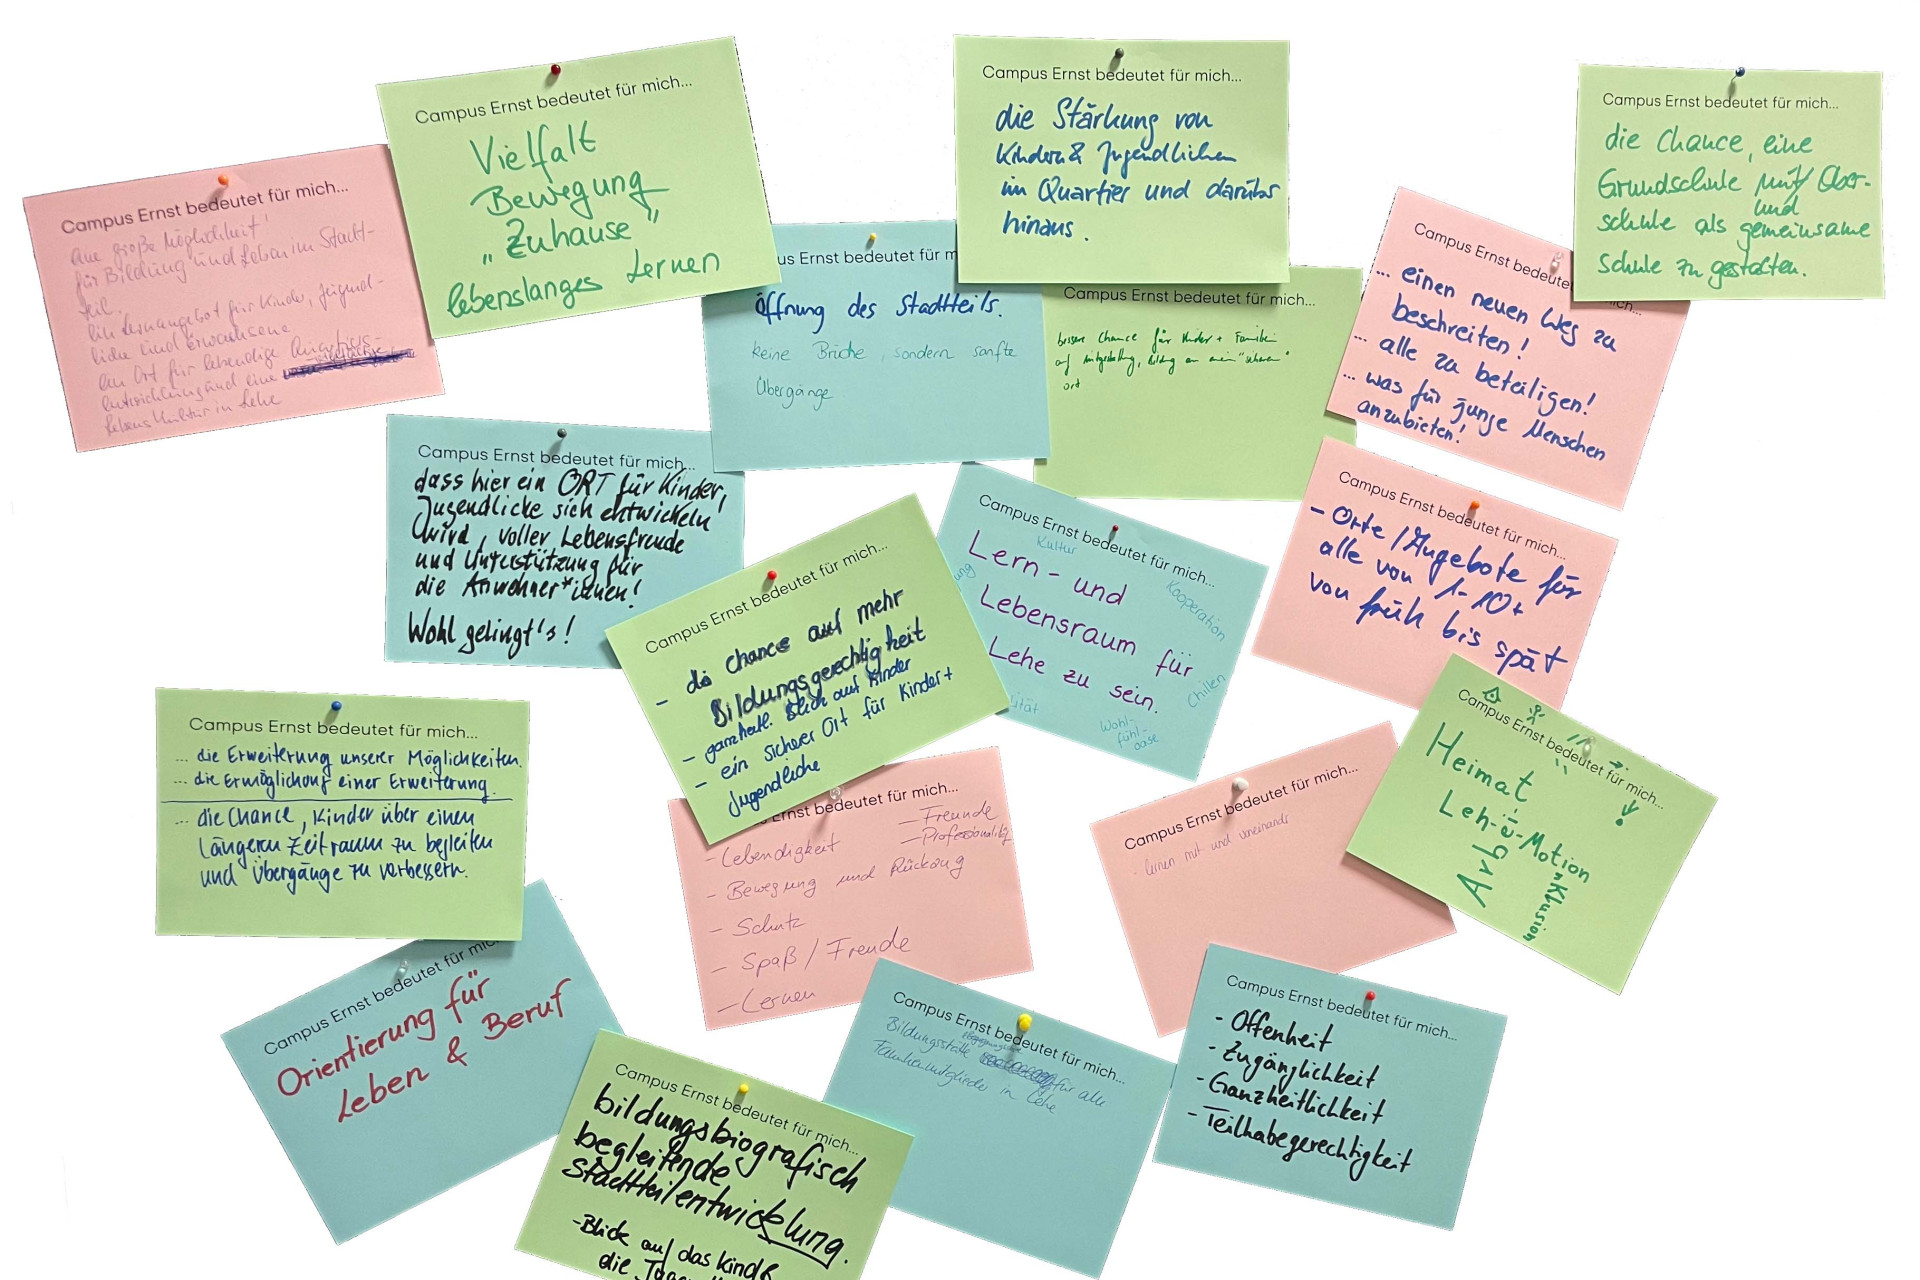 Campus Ernst bedeutet für mich...
eine große Möglichkeit!
für Bildung und Leben im Stadt-
teil.
Ein Lernangebot für Kinder, Jugend-
liche und Erwachsene
ein Ort für lebendige Quartiers-
entwicklung und eine
Lebenskultur in Lehe
Campus Ernst bedeutet für mich...
Vielfalt
Bewegung
"Zuhause"
lebenslanges Lernen
us Ernst bedeutet für m
Öffnung des Stadtteils.
keine Brüche, sondern sanfte
Übergänge
Campus Ernst bedeutet für mich...
die Stärkung von
Kindern & Jugendlichen
im Quartier und darüber
hinaus.
Campus Ernst bedeutet für mich...
bessere Chance für Kinder + Familien
auf Mitgestaltung, Bildung an
ort
Campus Ernst bedeute
ich...
... einen neuen Weg zu
beschreiten!
... alle zu beteiligen!
... was für junge Menschen
anzubieten!
Campus Ernst bedeutet für mich...
die Chance, eine
Grundschule mit Ober-
und
schule als gemeinsame
Schule zu gestalten.
Campus Ernst bedeutet für mich...
dass hier ein ORT für Kinder,
Jugendliche sich entwickeln
wird, voller Lebensfreude
und Unterstützung für
die Anwohner*innen!
Wohl gelingt's!
Campus Ernst bedeutet für mich...
- die Chance auf mehr
Bildungsgerechtigkeit
- ganzheitl. Blick auf Kinder
- ein sicherer Ort für Kinder +
Jugendliche
Campus Ernst bedeutet für mich...
Kultur
ung
Lern- und
Lebensraum für
Lehe zu sein.
Kooperation
Chillen
ität
Wohl-
fühl-
oase
Campus Ernst bedeutet für mich...
- Orte / Angebote für
alle von 1-10+
von früh bis spät
Campus Ernst bedeutet für mich...
Heimat
Leh-é-Motion
Arbeit
Klusion
Campus Ernst bedeutet für mich...
... die Erweiterung unserer Möglichkeiten.
... die Ermöglichung einer Erweiterung.
... die Chance, Kinder über einen
längeren Zeitraum zu begleiten
und Übergänge zu verbessern.
s Ernst bedeutet für mich...
- Freunde
- Professionalität
- Lebendigkeit
- Bewegung und Rückzug
- Schutz
- Spaß / Freude
- Lernen
Campus Ernst bedeutet für mich...
. lernen mit und voneinander
Campus Ernst bedeutet für mic
Orientierung für
Leben & Beruf
Campus Ernst bedeutet für mich...
bildungsbiografisch
begleitende
Stadtteilentwicklung.
- Blick auf das Kind &
die
Campus Ernst bedeutet für mich...
Bildungsstätte für alle
Familienmitglieder in Lehe
Campus Ernst bedeutet für mich...
- Offenheit
- Zugänglichkeit
- Ganzheitlichkeit
- Teilhabegerechtigkeit